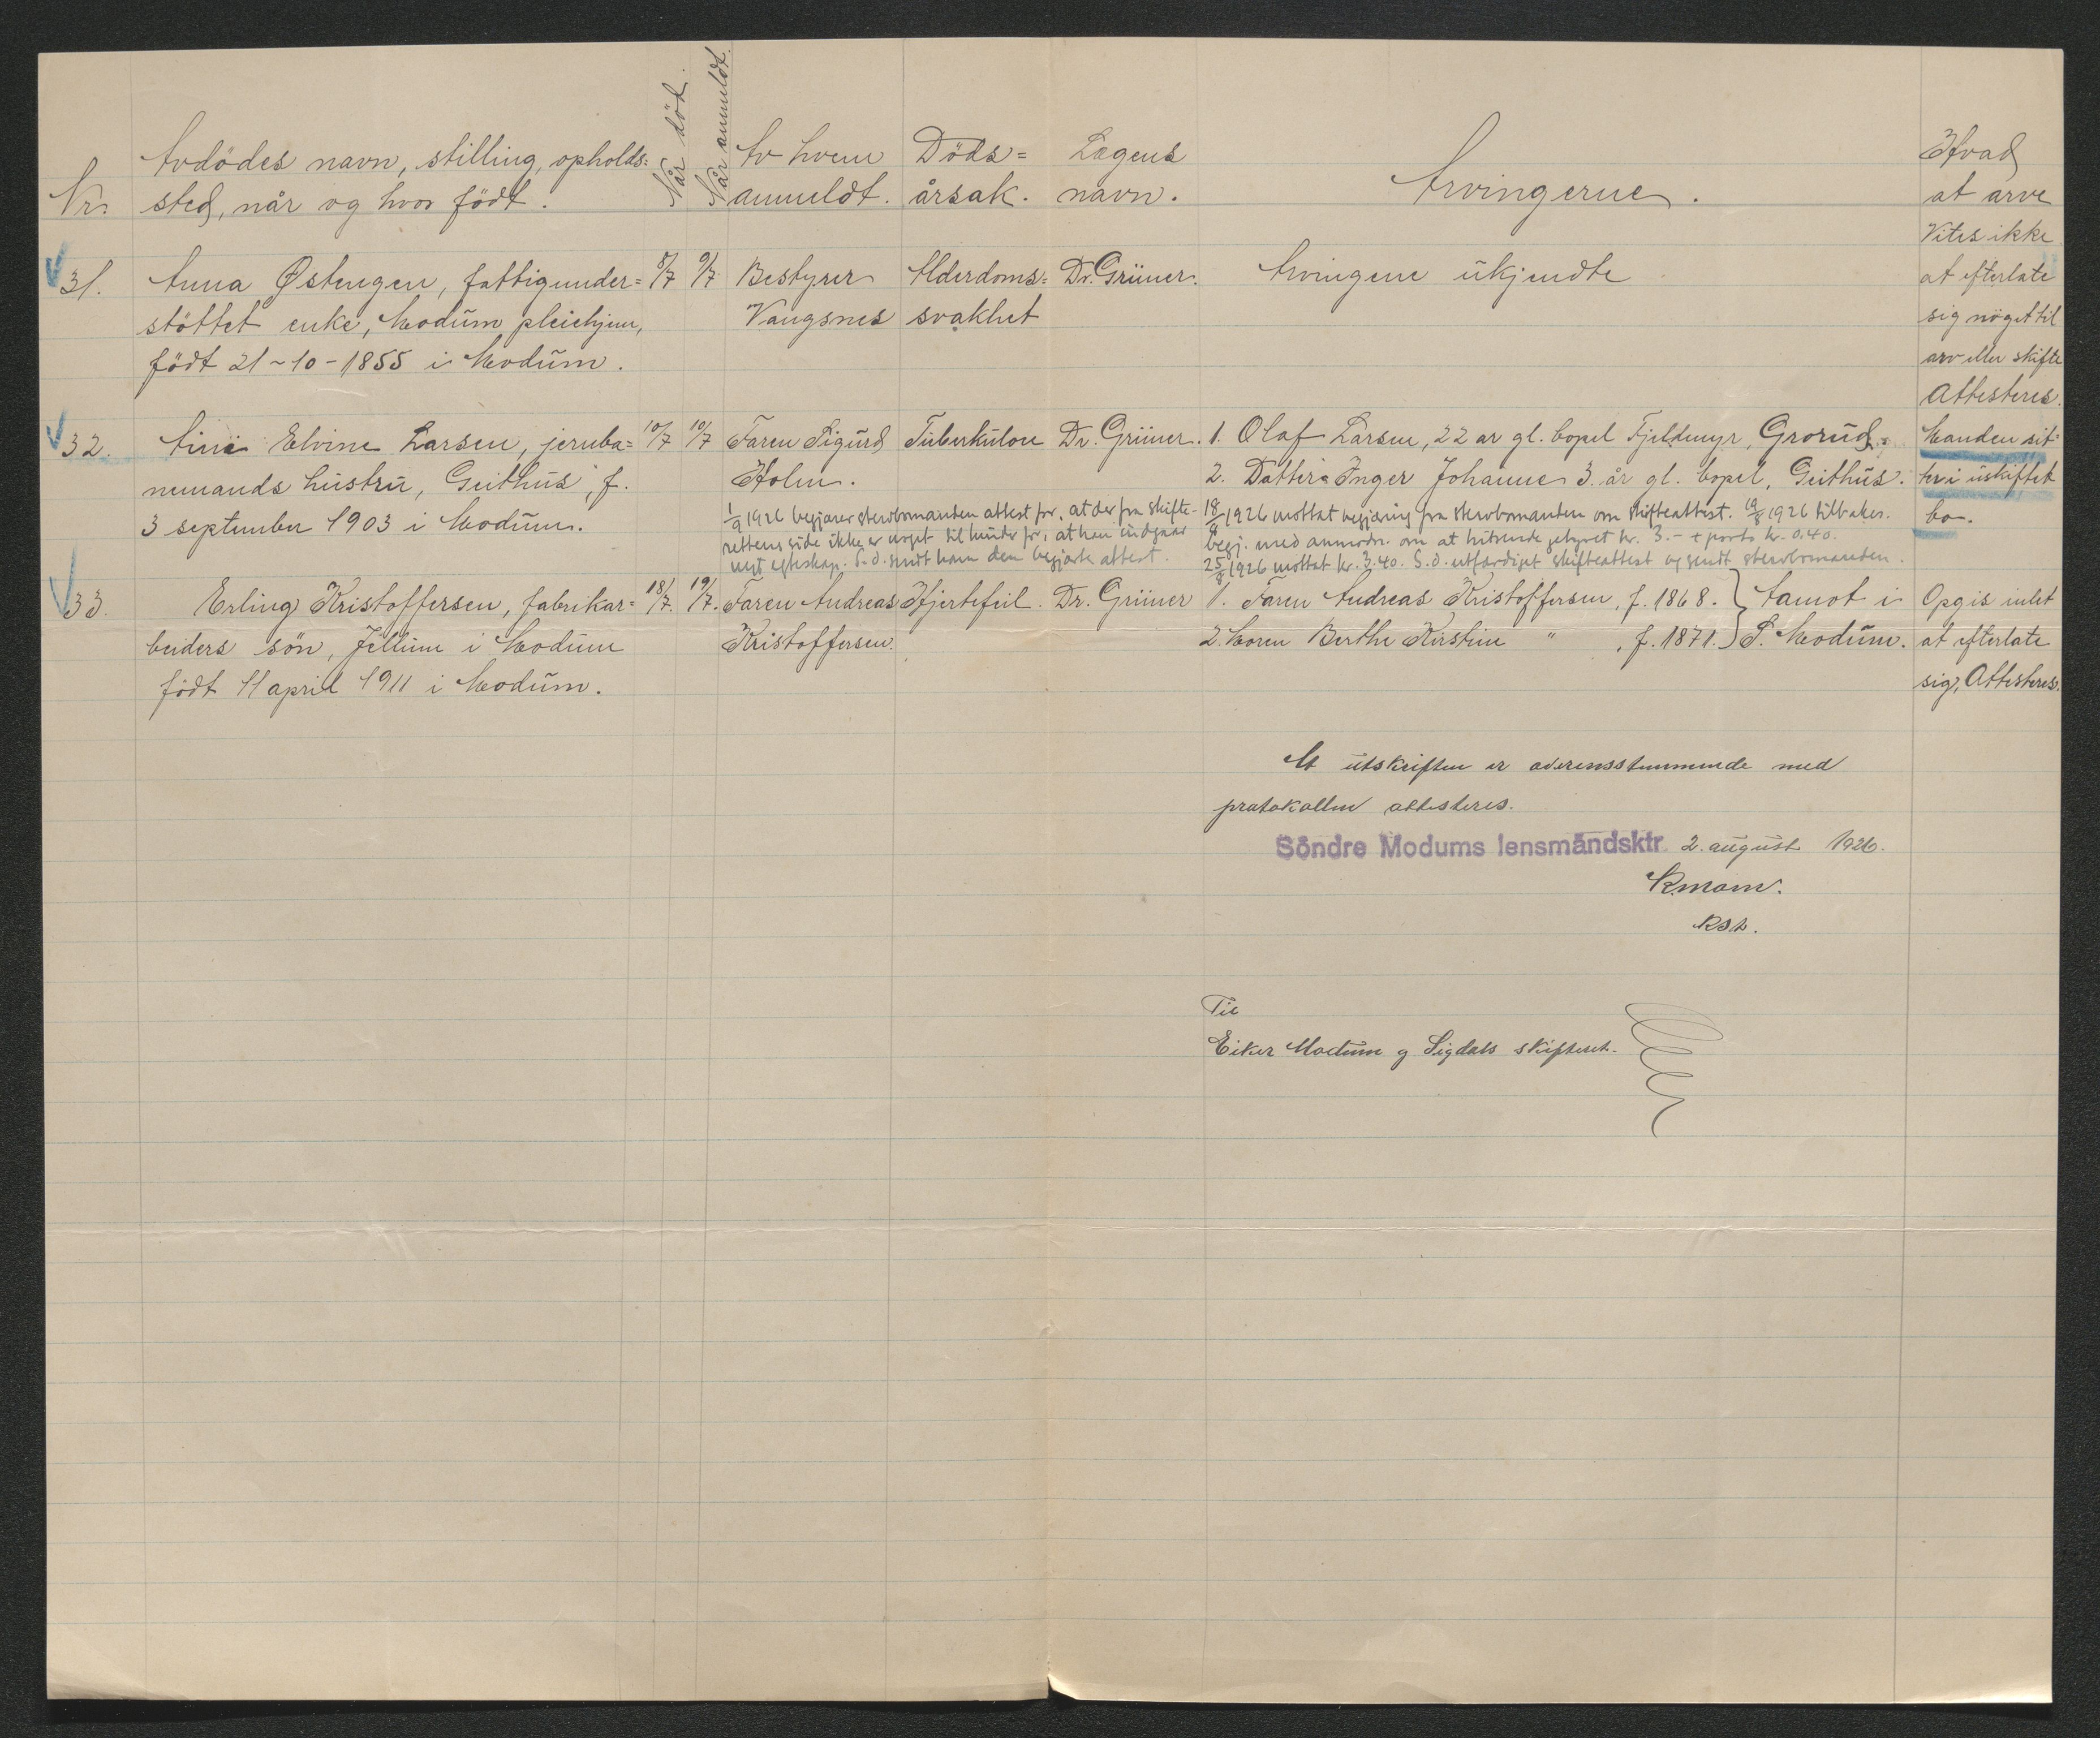 Nr. Avdödes navn, stilling, opholds= Når död. Når anmeldt. Av hvem Döds= Lægens Arvingerne. Hvad
sted, når og hvor född. anmeldt. årsak. navn. at arve
31. Anna Østengen, fattigunder= 8/7 9/7 Bestyrer Alderdoms= Dr. Grüner. Arvingene ukjendte Vites ikke
stöttet enke, Modum pleiehjem, Vangsnes svakhet at efterlate
född 21-10-1855 i Modum. sig noget til
arv eller skifte
Attesteres.
32. Lina Elvine Larsen, jernba= 10/7 10/7 Faren Sigurd Tuberkulose Dr. Grüner. 1. Olaf Larsen, 22 år gl. bopel Fjeldmyr, Grorud. Manden sit=
nemands hustru, Geithus, f. Holm. 2. Datter: Inger Johanne 3 år gl. bopel, Geithus. ter i uskiftet
3 september 1903 i Modum. bo.
1/9 1926 begjærer stervbomanden attest for, at der fra skifte-
rettens side ikke er noget til hinder for, at han indgaar
nyt egteskap. S.d. sendt ham den begjærte attest.
18/8 1926 mottat begjæring fra stervbomanden om skifteattest. 19/8 1926 tilbakes.
begj. med anmodn. om at hitsende gebyret kr. 3.- + porto kr. 0.40.
25/8 1926 mottat kr. 3.40. S.d. utfærdiget skifteattest og sendt stervbomanden.
33. Erling Kristoffersen, fabrikar= 18/7. 19/7. Faren Andreas Hjertefeil. Dr. Grüner 1. Faren Andreas Kristoffersen, f. 1868. } Åamot i Opgis intet
beiders sön, Jellum i Modum Kristoffersen. 2. Moren Berthe Kirstine " , f. 1871. } S. Modum. at efterlate
född 11 april 1911 i Modum. sig, Attesteres.
At utskriften er overensstemmende med
protokollen attesteres.
Söndre Modums lensmandsktr. 2. august 1926.
Til
Eiker Modum og Sigdals skifteret.